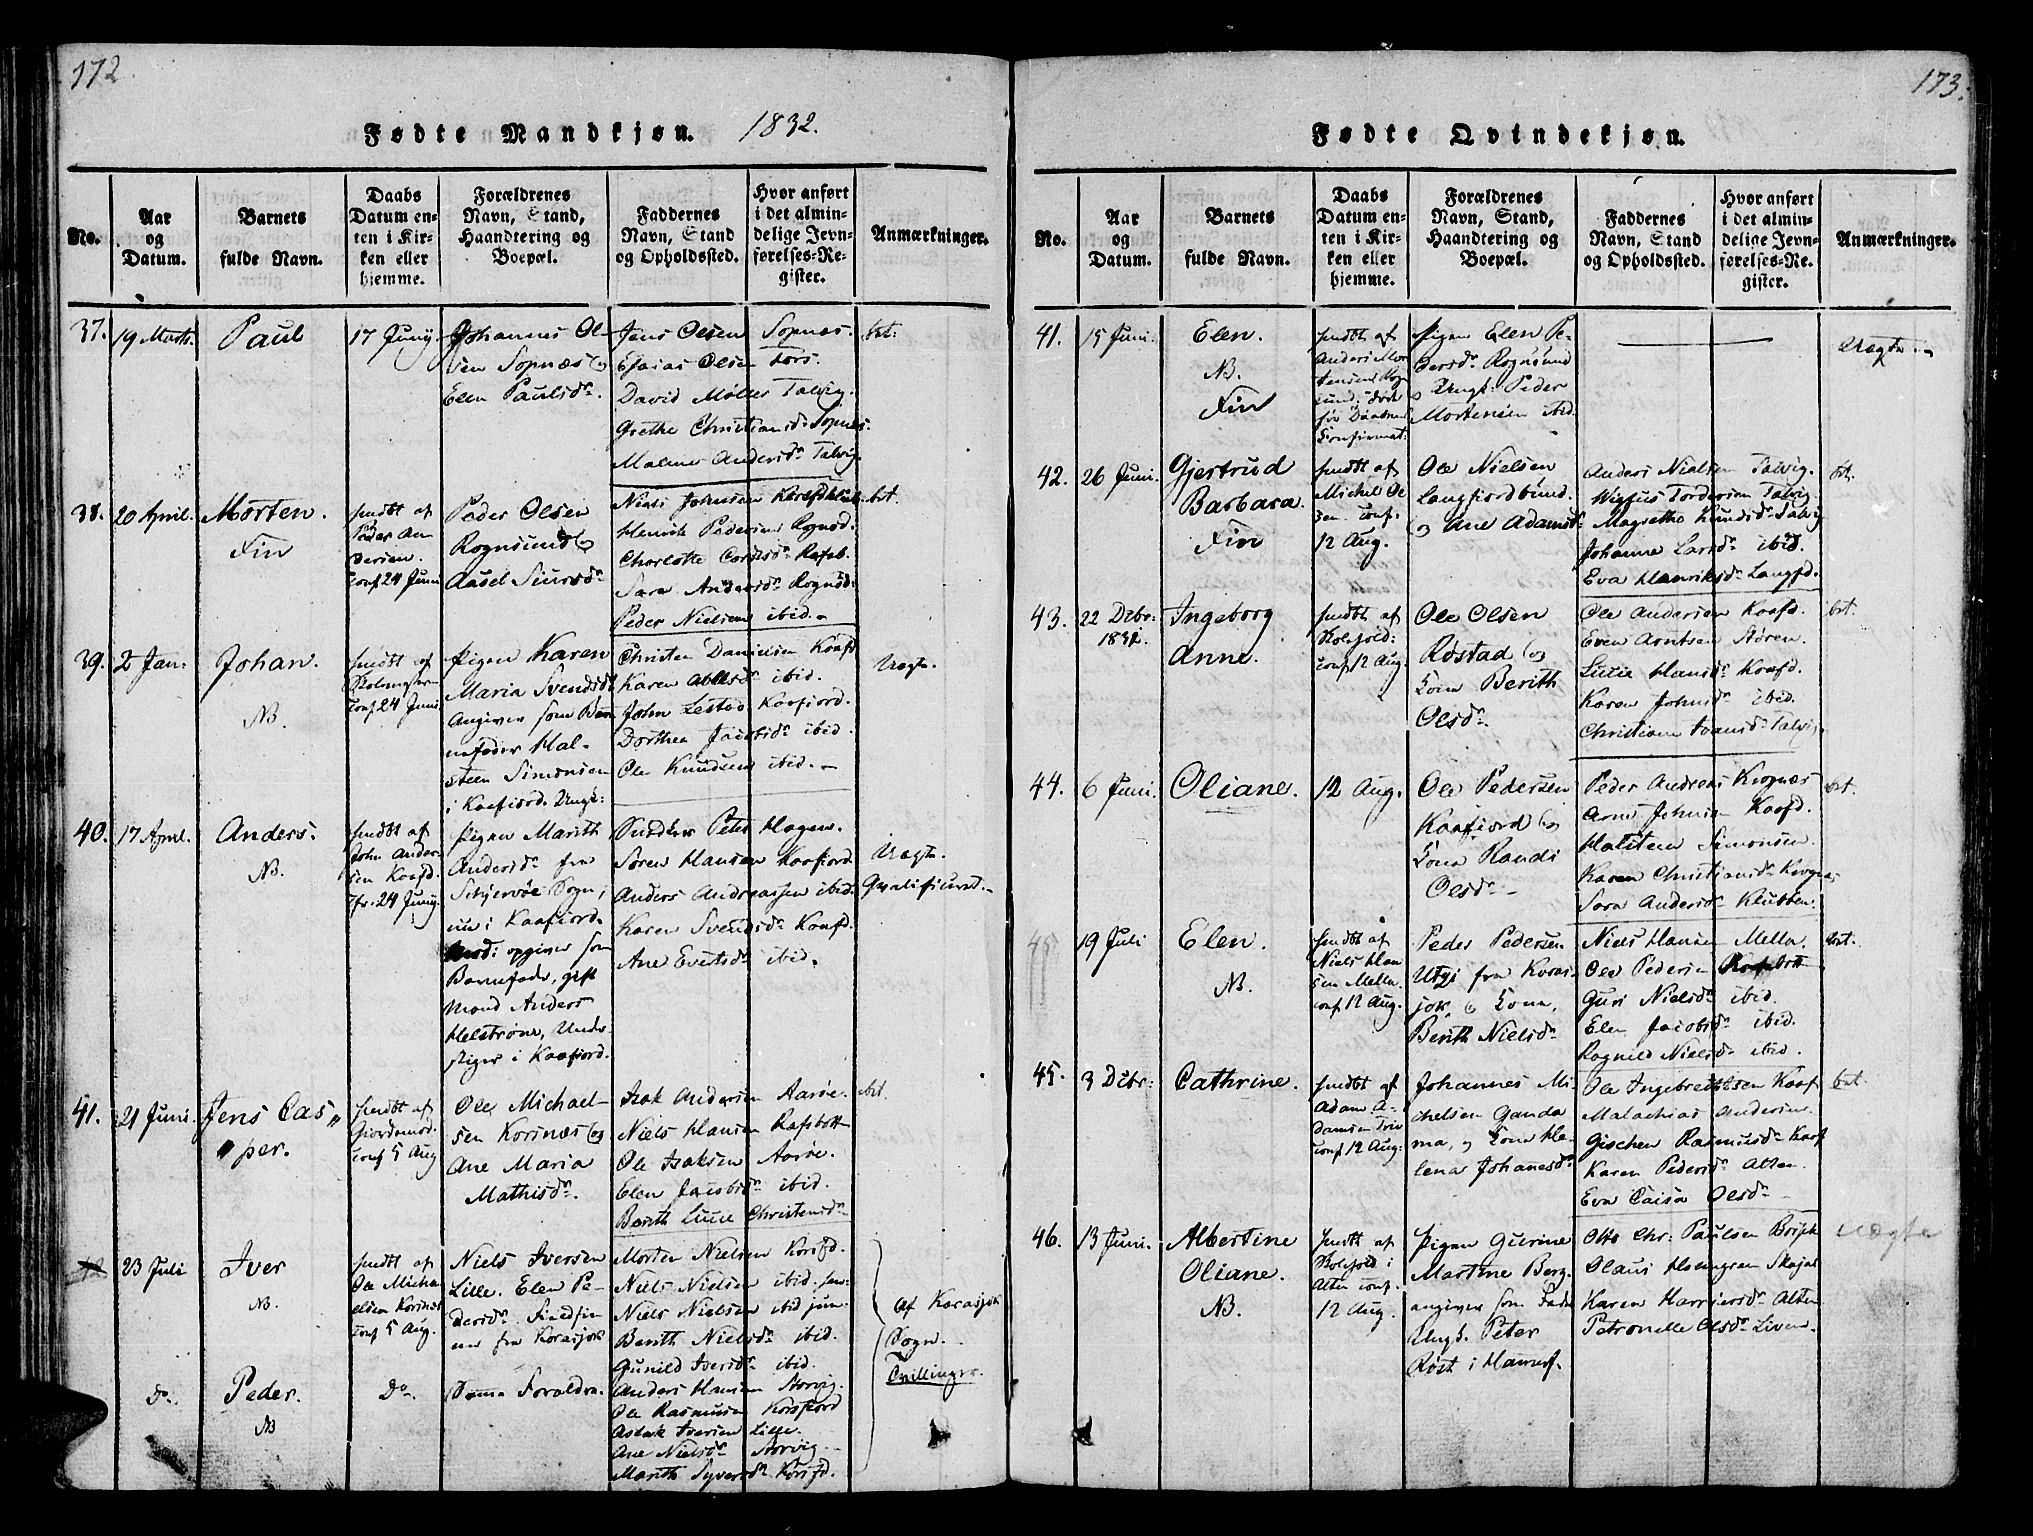 172.
Fødte Mandkjøn. 1832.
No.
Aar
og
Datum.
Barnets
fulde Navn.
Daabs
Datum en-
ten i Kir-
ken eller
hjemme.
Forældrenes
Navn, Stand,
Haandtering og
Boepæl.
Faddernes
Navn, Stand
og Opholdssted.
Hvor anført
i det almin-
delige Jevn-
førelses-Re-
gister.
Anmærkninger.
37.
19 Marts.
Paul
17 Junij.
Johannes Ol-
sen Sopnæs og
Elen Paulsdr.
Jens Olsen Sopnæs.
Esaias Olsen Fors.
David Møller Talvig.
Grethe Christiansdr Sopnæs.
Malene Andersdr Talvig.
38.
20 April.
Morten.
Fin
hmdbt af
Peder An
dersen.
conf 24 Juni
Peder Olsen
Rognsund og
Aasel Siursdr
Niels Johnsen
Henrik Pedersen Rognsd.
Charlotte Rafsb.
Sara Andersdr Rognsd.
Peder Nielsen ibid.
39.
2 Jan:
Johan.
NB.
hmdbt af
conf 24 Juni
Pigen Karen
Maria Svendsdr
angiver som Bar
nefader Hal-
steen Simonsen
i Kaafiord. Ungk:
Christen Danielsen Kaafd
Karen ibid.
John Lestad Kaafiord.
Dorthea Jacobsdr ibid.
Ole Knudsen ibid.
Uægte.
40.
17 April.
Anders.
NB.
hmdbt af
John Ander-
sen Kaafd.
cfr: 24 Junij.
Pigen Marith
Andersdr fra
Skjervøe Sogn,
nu i Kaafiord.
opgiver som
Barnefader, gift
Mand Anders
Helstrøm, Unde
stiger i Kaafiord.
Peter Hagen.
Søren Hansen Kaafiord
Anders Andreassen ibid.
Karen Svendsdr Kaafd.
Ane Evertsdr ibid.
Uægte.
41.
21 Juni.
Jens Cas„
„ per.
hmdbt af
Giordemod.
conf 5 Aug
Ole Michael-
sen Korsnæs og
Ane Maria
Mathisdr.
Isak Andersen Aarøe.
Niels Hansen Rafsbott
Ole Isaksen Aarøe.
Elen Jacobsdr ibid.
Berith Lucie Christensdr
42
23 Juli
Iver
NB.
hmdbt af
Ole Micha
elsen Korsnæs
conf 5 Aug.
Niels Iversen
Lille. Elen Pe-
dersdr. Fieldfin
ner fra Korasjok
Morten Nielsen Korsfd.
Niels Nielsen ibid sen:
Niels Nielsen ibid jun:
Berith Nielsdr ibid.
Gunild Iversdr ibid.
Af Karasjok
Sogn.
Tvillinger.
Do.
Peder.
NB
Do.
Samme Forældre.
Anders Hansen Storvig.
Ole Rasmusen Korsfiord
Aslak Iversen Lille.
Ane Nielsdr Storvig
Marith Syversdr Korsfd.
173.
Fødte Qvindekjøn.
No.
Aar
og
Datum.
Barnets
fulde Navn.
Daabs
Datum en-
ten i Kir-
ken eller
hjemme.
Forældrenes
Navn, Stand,
Haandtering og
Boepæl.
Faddernes
Navn, Stand
og Opholdssted.
Hvor anført
i det almin-
delige Jevn-
førelses-Re-
gister.
Anmærkninger.
41.
15 Juni.
Elen.
NB.
Fin
hmdbt af
Anders Mor
tensen Rogn
sund, død
før Daabens
Confirmat:
Pigen Elen Pe-
dersdr. Rognsund
og Ungk: Peder
Mortensen ibid.
Uægte.
42.
26 Juni.
Gjertrud
Barbara.
Fin
hmdbt af
Michel Ol
sen. conf.
12 Aug.
Ole Nielsen
Langfiordbund.
og Ane Adamsdr
Anders Nielsen Talvig.
Tordersen Talvig
Magrethe Knudsdr Talvig
Johanne Larsdr ibid.
Eva Henriksdr Langfd.
43.
22 Debr.
1831.
Ingeborg
Anne.
hmdbt af
conf 12 Aug.
Ole Olsen
Røstad og
Kona Berith
Olsdr.
Ole Andersen Kaafd.
Even Arntsen Støren.
Lucie Hansdr Kaafd.
Karen Johnsdr ibid.
Christiane Talvig.
44.
6 Juni.
Oliane.
12 Aug.
Ole Pedersen
Kaafiord og
Kona Randi
Olsdr
Peder Andreas Kvgnæs
Arne Johnsen Kaafd.
Halsteen Simonsen
Karen Christiansdr
Sara Andersdr Klubben.
45
19 Juli
Elen.
NB.
hmdbt af
Niels Han
sen Mella.
conf 12 Aug.
Peder Pedersen
Utzi fra Karas-
jok, og Kona,
Berith Nielsdr
Niels Hansen Mella.
Ole Pedersen Rafsbott
Guri Nielsdr ibid.
Elen Jacobsdr ibid.
Ragnild Nielsdr ibid.
45.
3 Debr:
Cathrine.
hmdbt af
Adam A-
damsen
conf 12 Aug:
Johannes Mi-
chelsen Ganda
ma, og Kona He-
lena Johanesdr
Ole Ingebreichtsen Kaaf
Malachias Andersen.
Gischen Rasmusdr Kaaf
Karen Pedersdr Alten.
Eva Caisa Olsdr
46.
13 Juni.
Albertine
Oliane.
NB.
hmdbt af
i
Alten conf.
12 Aug.
Pigen Gurine
Martine Berg.
angiver som Fader
Ungk. Peter
Røst i Hamrf.
Otto Chr: Paulsen
Olaus Holmgren
Karen Alten
Petronelle Olsdr Liven.
Uægte